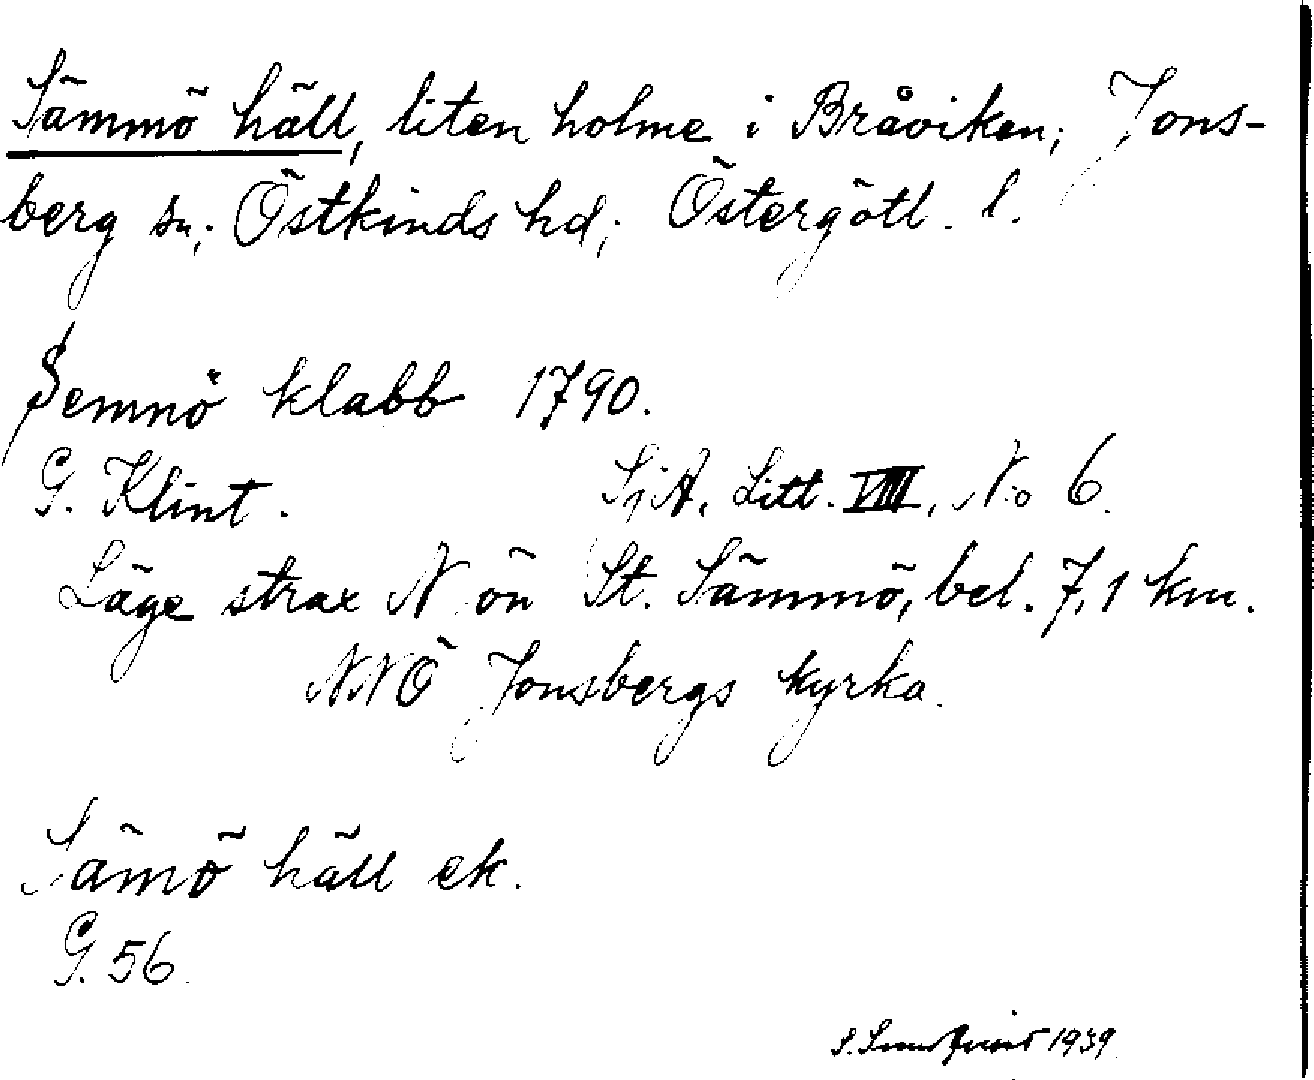 Sämmö häll, liten holme i Bråviken; Jons-
berg sn; Östkinds hd; Östergötl. l.
Semnö klabb 1790.
G. Klint. SjA, Litt. VIII, No 6.
Läge strax N ön St. Sämmö, bel. 7,1 km.
NNÖ Jonsbergs kyrka.
Sämö häll ek.
G. 56.
S. Sundquist 1939